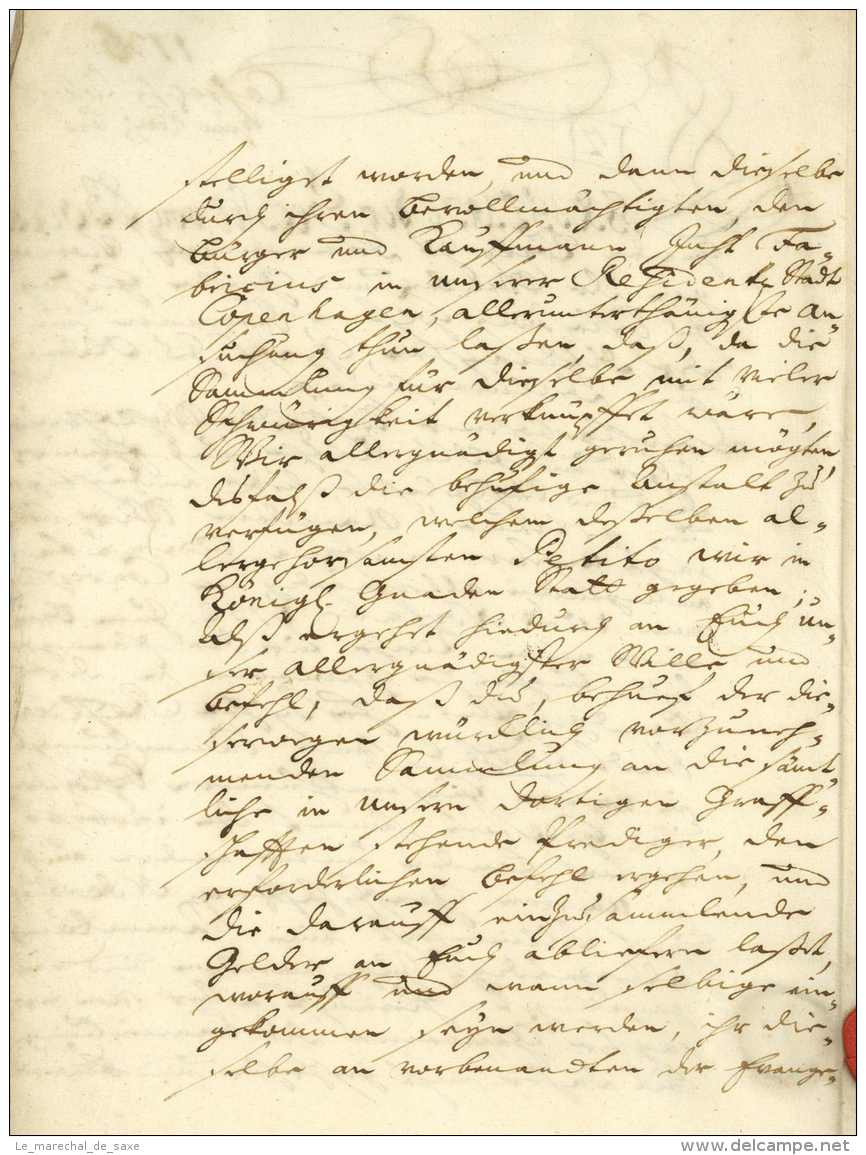 stelliget worden, und dann dieselbe
durch ihren bevollmächtigten, den
bürger und Kauffmann Fa-
bricius in unserer Residentz Stadt
Copenhagen, allerunterthänigste An
suchung thun laßen, daß, da die
Sammlung für dieselbe mit vieler
Schwürigkeit verknüpffet wäre,
Wir allergnädigst geruhen mögten,
disfalß die behüfige Anstalt zu
verfügen, welchem desselben al-
lergehorsamsten Petito wir in
Königl. Gnaden Statt gegeben;
Alß ergehet hiedurch an Euch un-
ser allergnädigster Wille und
befehl, daß du, behueff der die-
serwegen würcklich vorzuneh-
menden Sammlung an die sämt-
liche in unsern dortigen Graff-
schafften stehende Prediger, den
erforderlichen befehl ergehen, und
die darauff einzusammlende
Gelder an Euch abliefern laßet,
worauff und wann selbige ein-
gekommen seyn werden, ihr die-
selbe an vorbenandten der Evange-
Le_marechal_de_saxe
www.delcampe.net